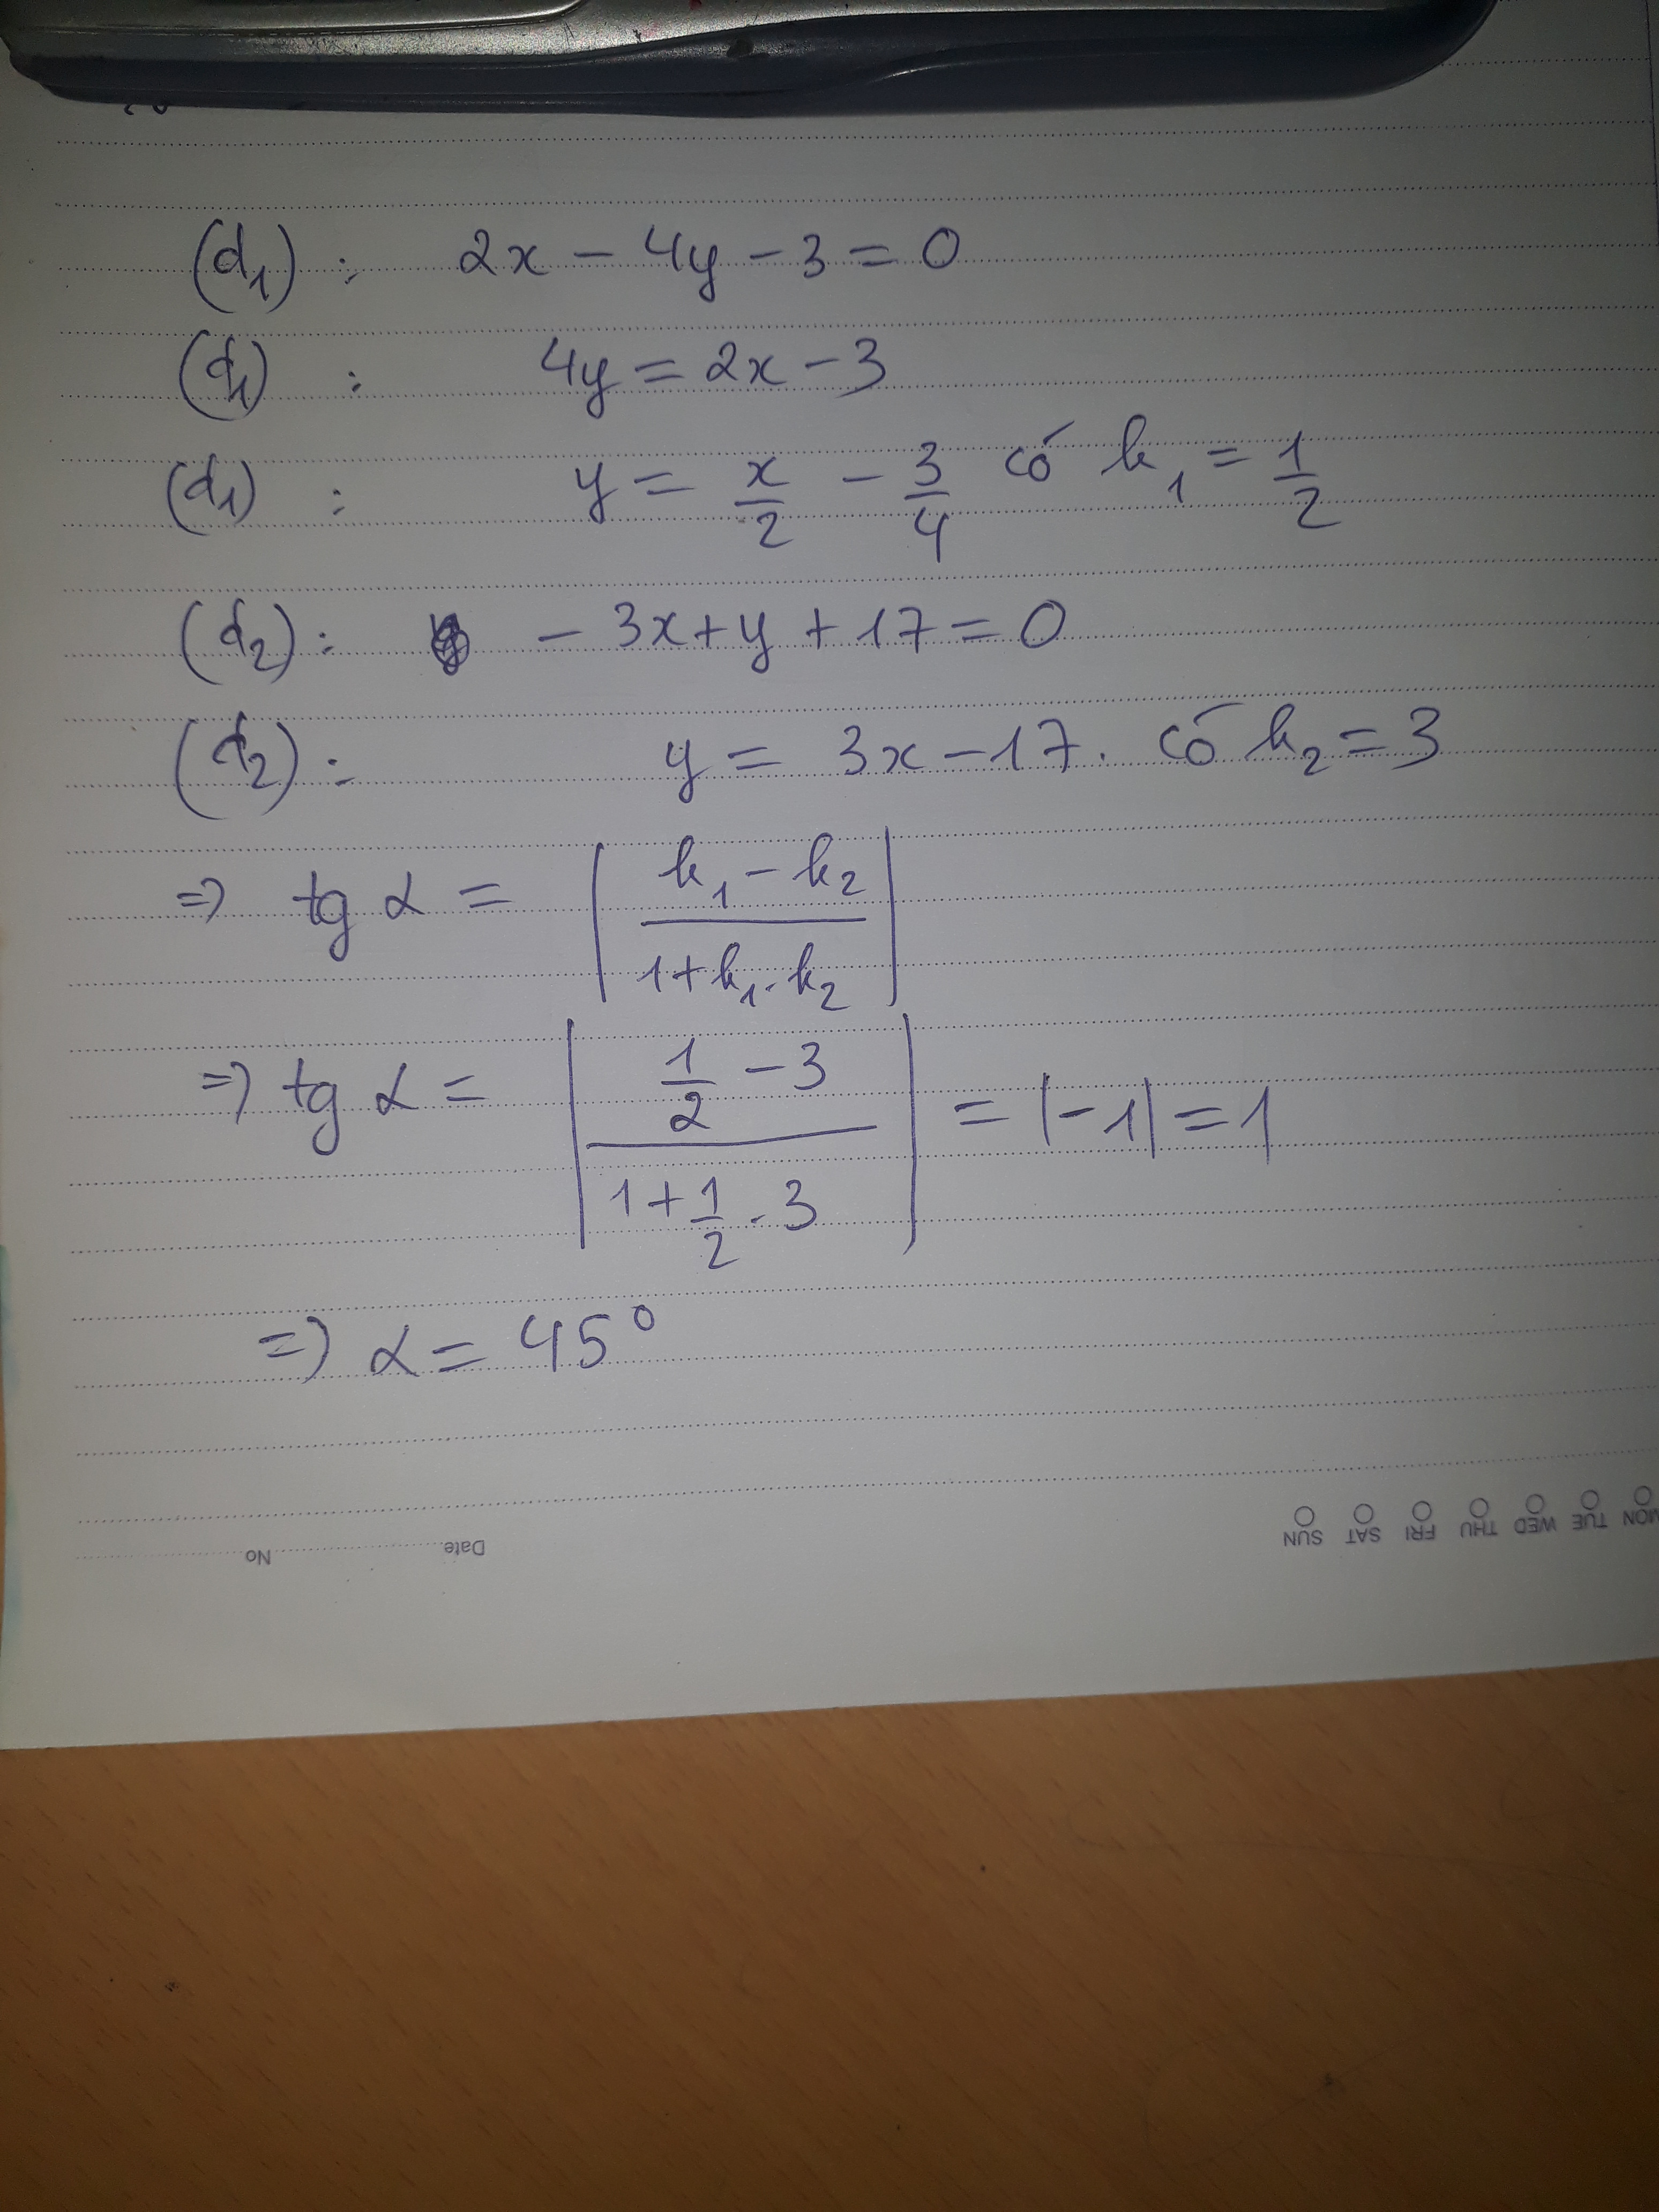 (d₁) : 2x - 4y - 3 = 0
(d₁) : 4y = 2x - 3
(d₁) : y = x/2 - 3/4 có k₁ = 1/2
(d₂) : - 3x + y + 17 = 0
(d₂) : y = 3x - 17. có k₂ = 3
=> tg α = | (k₁ - k₂)/(1 + k₁.k₂) |
=> tg α = | (1/2 - 3)/(1 + 1/2 . 3) | = |-1| = 1
=> α = 45°
MON TUE WED THU FRI SAT SUN
Date No